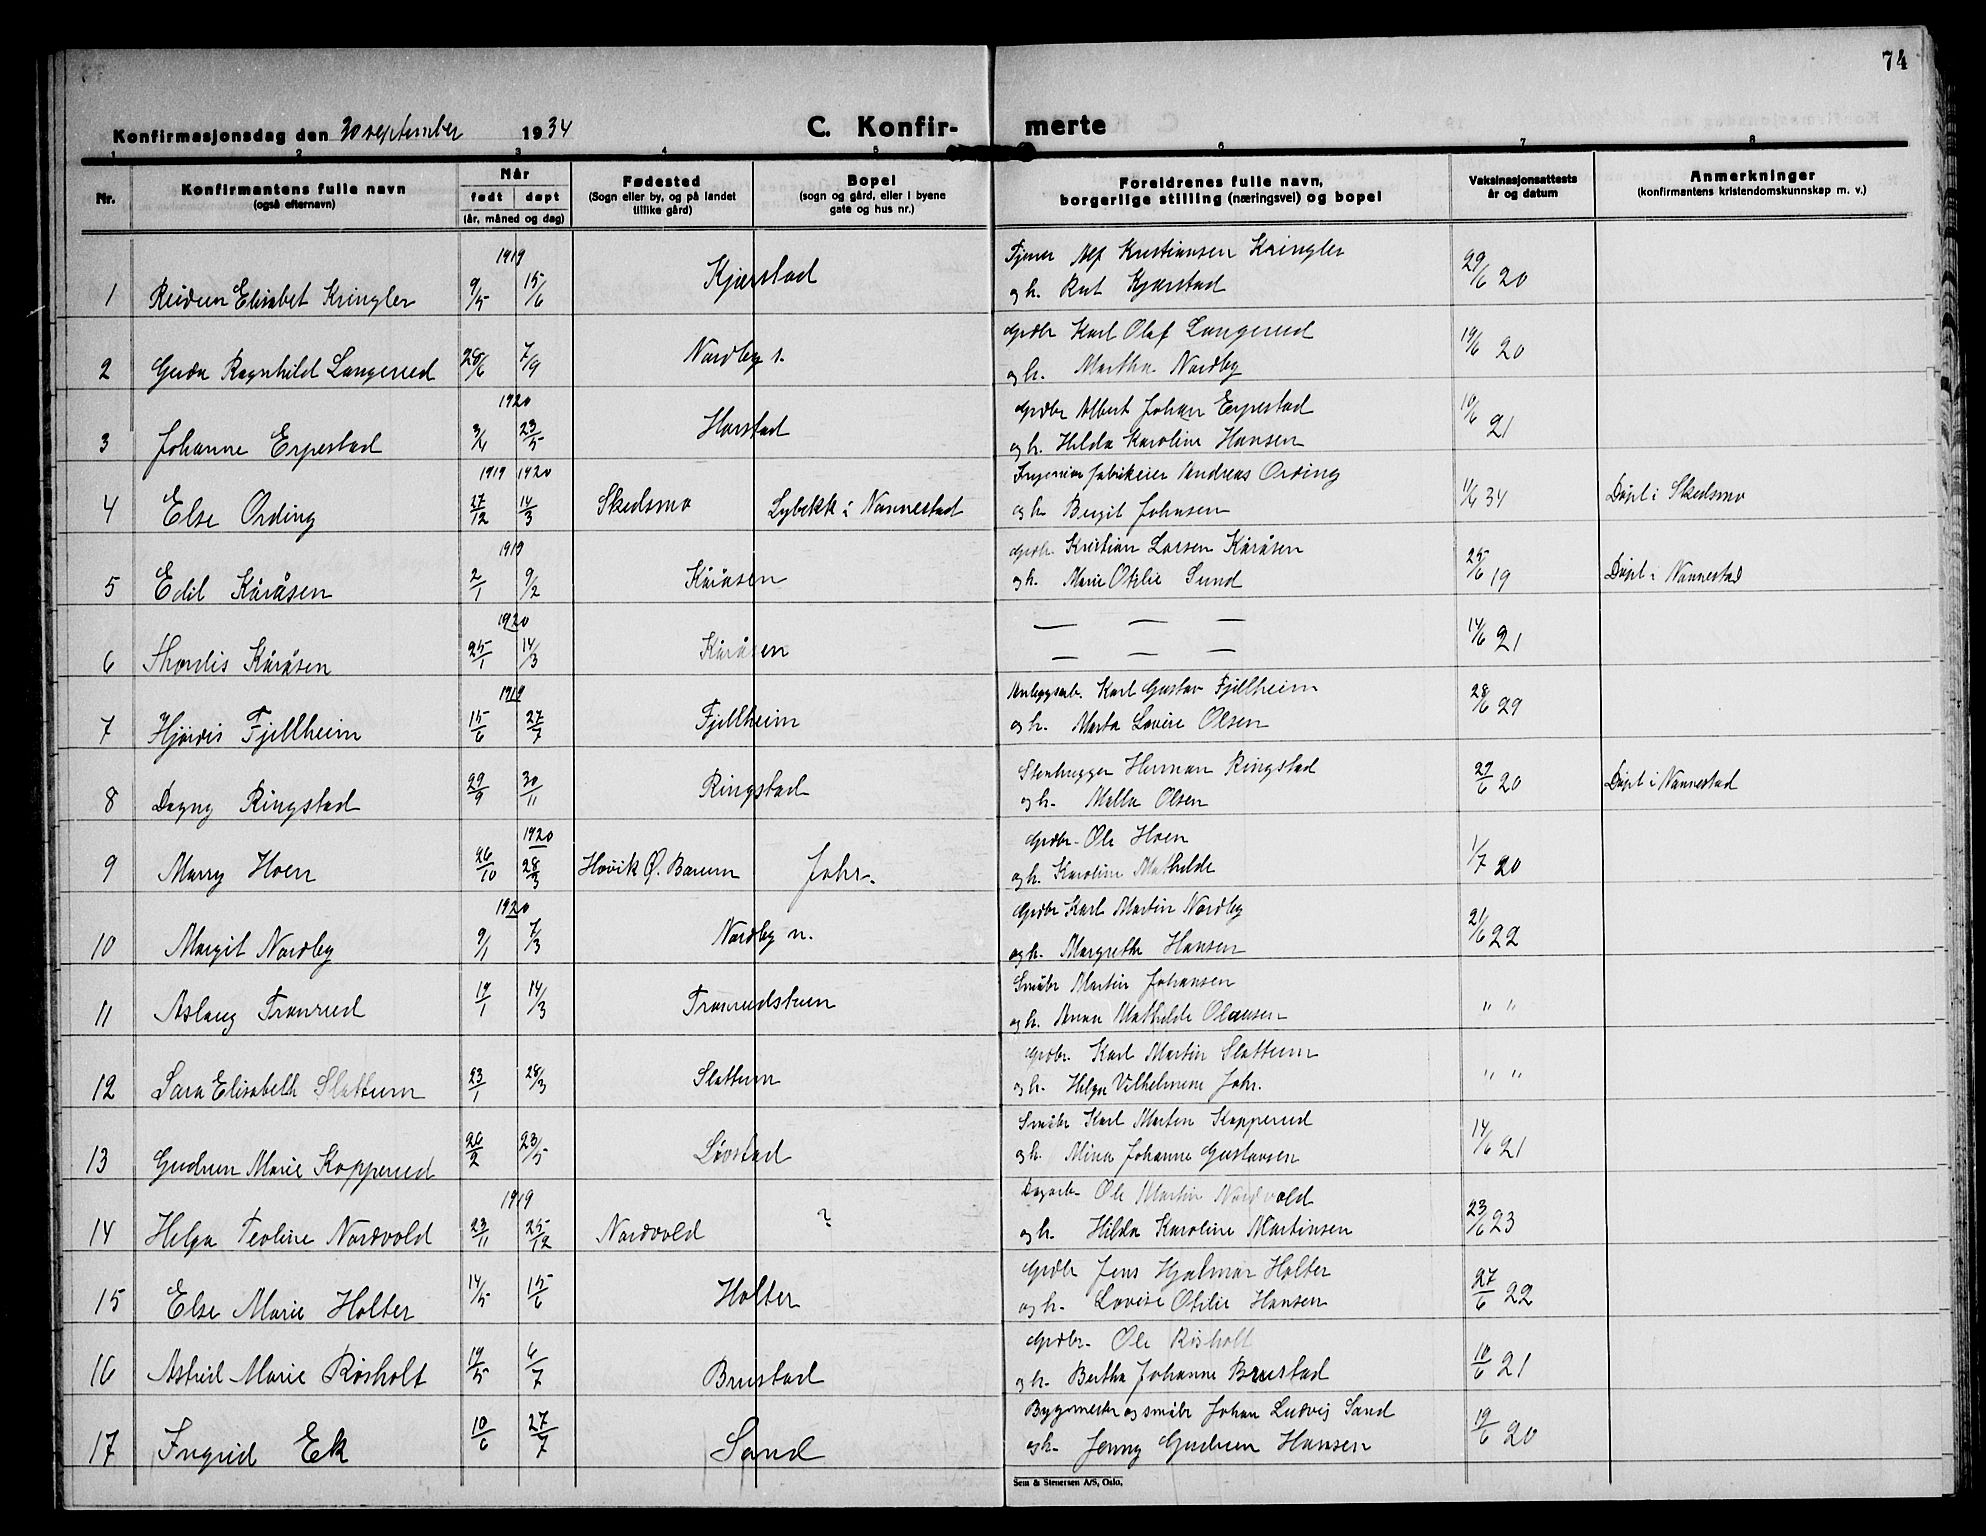 74
Konfirmasjonsdag den 30 september 1934
C. Konfir- merte
1 2 3 4 5 6 7 8
Nr.
Konfirmantens fulle navn
(også efternavn)
Når
født døpt
(år, måned og dag)
Fødested
(Sogn eller by, og på landet
tillike gård)
Bopel
(sogn og gård, eller i byene
gate og hus nr.)
Foreldrenes fulle navn,
borgerlige stilling (næringsvei) og bopel
Vaksinasjonsattests
år og datum
Anmerkninger
(konfirmantens kristendomskunnskap m. v.)
1919
Alf Kristiansen Kringler
1 Reidun Elisabet Kringler 9/5 15/6 Kjærstad og h. Rut Kjærstad 29/6 20
Grdbr Karl Olaf Langerud
2 Gerda Ragnhild Langerud 28/6 7/9 Nordby s. og h. Martha Nordby 19/6 20
1920
Grdbr Albert Johan Erpestad
3 Johanne Erpestad 3/4 23/5 Harstad og h. Hilda Karoline Hansen 10/6 21
1919 1920
Ingeniør fabrikeier Andreas Ording
4 Else Ording 27/12 14/3 Skedsmo Lybekk i Nannestad og h. Bergit Johnsen 11/6 34 Døpt i Skedsmo
1919
Grdbr. Kristian Larsen Kåråsen
5 Edil Kåråsen 2/1 9/2 Kåråsen og h. Marie Otilie Sund 25/6 19 Døpt i Nannestad
1920
— — —
6 Thordis Kåråsen 25/1 14/3 Kåråsen — — — 14/6 21
1919
Anleggsarb. Karl Gustav Fjellheim
7 Hjørdis Fjellheim 15/6 27/7 Fjellheim og h. Marta Lovise Olsen 28/6 29
Stenhugger Herman Ringstad
8 Dagny Ringstad 29/9 30/11 Ringstad og h. Mella Olsen 29/6 20 Døpt i Nannestad
1920
Grdbr. Ole Hoen
9 Marry Hoen 26/10 28/3 Høvik Ø. Bærum Johr. og h. Karoline Mathilde 1/7 20
1920
Grdbr Karl Martin Nordby
10 Margit Nordby 9/1 7/3 Nordby n. og h. Margrethe Hansen 21/6 22
Småbr Martin Johansen
11 Aslaug Tranrud 19/1 14/3 Tranrudstuen og h. Anna Mathilde Olausen " "
Grdbr. Karl Martin Slattum
12 Sara Elisabeth Slattum 23/1 28/3 Slattum og h. Helga Vilhelmine Johr. " "
Småbr Karl Morten Kopperud
13 Gudrun Marie Kopperud 26/2 23/5 Løvstad og h. Mina Johanne Gustavsen 14/6 21
1919
Dagarb. Ole Martin Nordvold
14 Helga Teoline Nordvold 23/11 25/12 Nordvold ? og h. Hilda Karoline Martinsen 23/6 23
Grdbr Jens Hjalmar Holter
15 Else Marie Holter 14/5 15/6 Holter og h. Lovise Otilie Hansen 27/6 22
Grdbr. Ole Røsholt
16 Astrid Marie Røsholt 19/5 6/7 Brustad og h. Bertha Johanne Brustad 10/6 21
Bygmester og småbr Johan Ludvig Sand
17 Ingrid Ek 10/6 27/7 Sand og h. Jenny Gudrun Hansen 19/6 20
Sem & Stenersen A/S, Oslo.